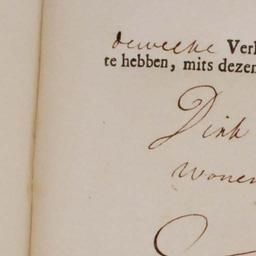 deweelke Verk
te hebben, mits dezen
Dirk
wonen